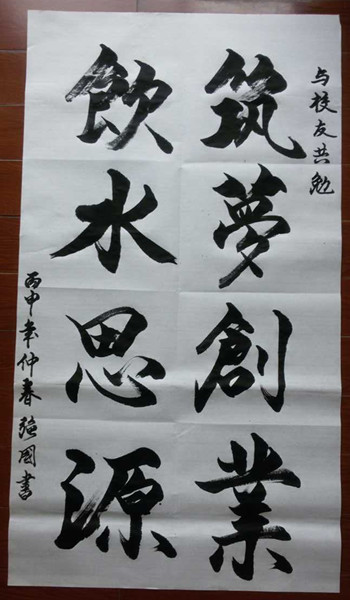 与校友共勉
筑夢創業
飲水思源
丙申年仲春强國書